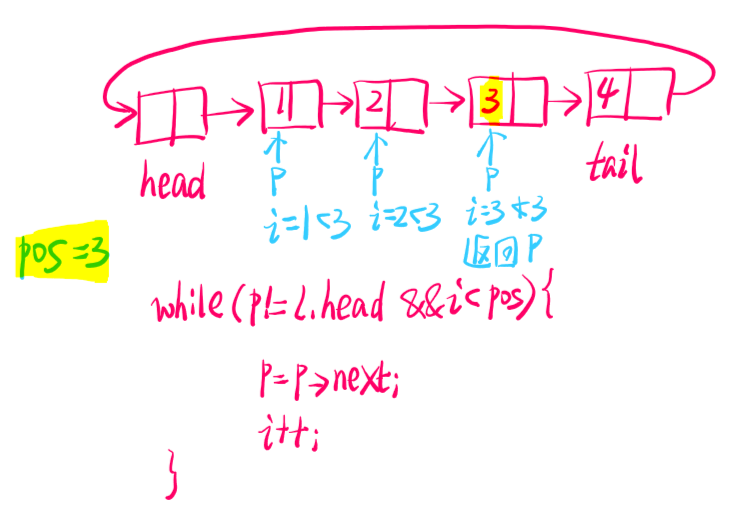 1 2 3 4
head P P P tail
i=1<3 i=2<3 i=3≮3
返回P
pos=3
while(p!=L.head &&i<pos){
P=P->next;
i++;
}